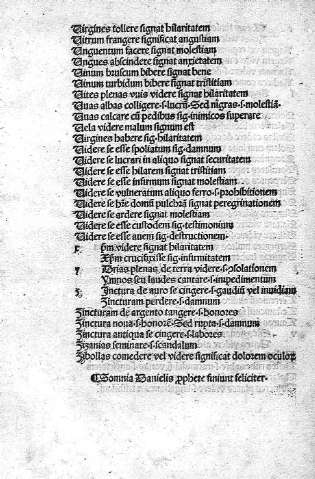 Virgines tollere signat hilaritatem
Vitrum frangere significat angustiam
Unguentum facere signat molestiam
Ungues abscindere signat anxietatem
Vinum bruscum bibere signat bene
Vinum turbidum bibere signat tristitiam
Vites plenas vuis videre signat hilaritatem
Vuas albas colligere .s. lucrũ. Sed nigras .s. molestiã.
Vuas calcare cũ pedibus sig. inimicos superare
Vela videre malum signum est
Virgines habere sig. hilaritatem
Videre se esse spoliatum sig. damnum
Videre se lucrari in aliquo signat securitatem
Videre se esse hilarem signat tristitiam
Videre se esse infirmum signat molestiam
Videre se vulneratum aliquo ferro .s. prohibitionem
Videre se hr̃e domũ pulchrã signat peregrinationem
Videre se ardere signat molestiam
Videre se esse custodem sig. testimonium
Videre se esse auem sig. destructionem.
x̃pm videre signat hilaritatem
Xp̃m crucifixisse sig. infirmitatem
y Ydrias plenas de terra videre .s. ꝯsolationem
Ymnos seu laudes cantare .s. impedimentum
z Zinctura de auro se cingere .s. gaudiũ vel inuidiam
Zincturam perdere .s. damnum
Zincturam de argento tangere .s. honores
Zinctura noua .s. honorẽ. Sed rupta .s. damnum
Zinctura antiqua se cingere .s. labores
Zizanias seminare .s. scandalum
Zibollas comedere vel videre significat dolorem oculoꝝ
⸿ Somnia Danielis ꝓphete finiunt feliciter.